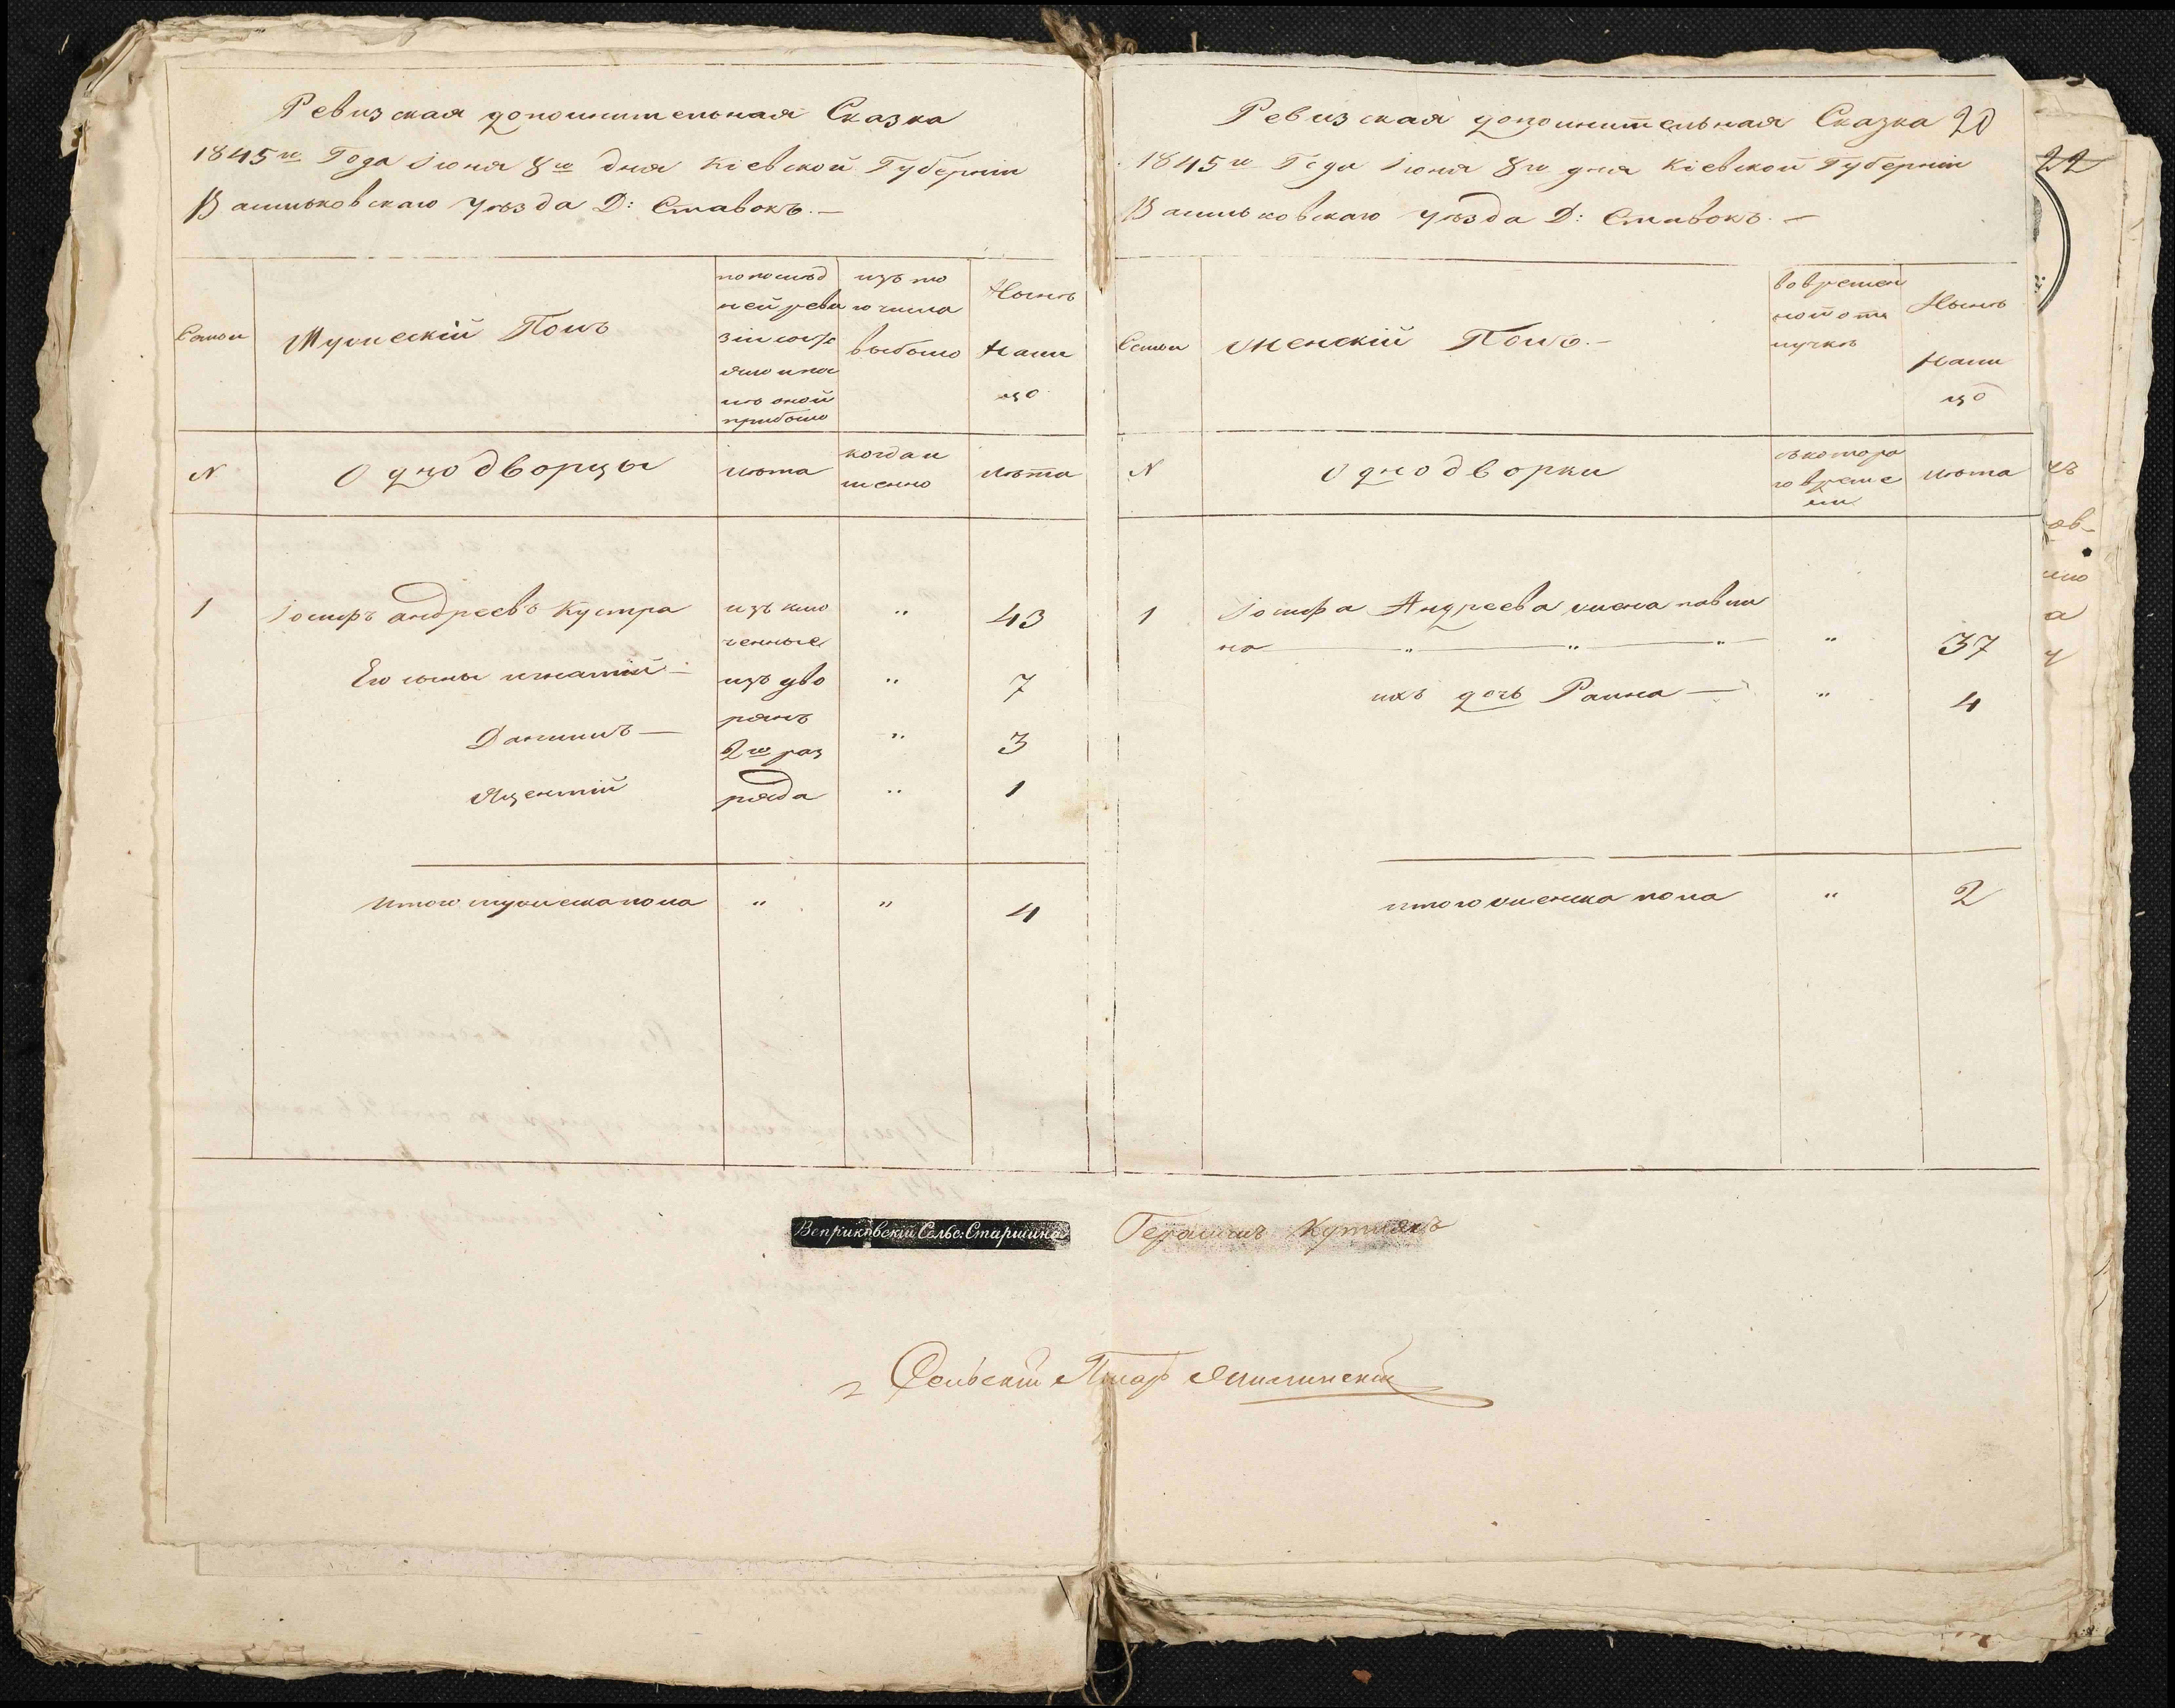 Ревизская дополнительная Сказка
1845го Года Iюня 8го дня Кiевской Губернiи
Васильковскаго Уѣзда Д: Ставокъ.—
Семьи
Мужескiй Полъ
по послѣд
ней реви
зiи состо
яло и пос
лѣ оной
прибыло
изъ то
го числа
выбыло
Нынѣ
Нали
цо
N
Однодворцы
лѣта
когда и
менно
лѣта
1
Iосифъ Андреевъ Кустра
изъ клю
ченные
"
43
Его сыны Игнатiй —
изъ дво
рянъ
"
7
Данiилъ —
2го раз
"
3
Яцентiй
ряда
"
1
Итого мужеска пола " " 4
Ревизская дополнительная Сказка 20
1845го Года Iюня 8го дня Кiевской Губернiи
Васильковскаго Уѣзда Д: Ставокъ.—
22
Семьи
Женскiй Полъ.—
во времен
ной отл
лучкѣ
Нынѣ
Нали
цо
N
Однодворки
съ котора
го време
ни
лѣта
1
Iосифа Андреева жена Павли
на — " — " — " — " 37
ихъ дочь Раина — " 4
итого женска пола " 2
Веприковскiй Сельс: Старшина
Герасимъ
Сельскiй Писар